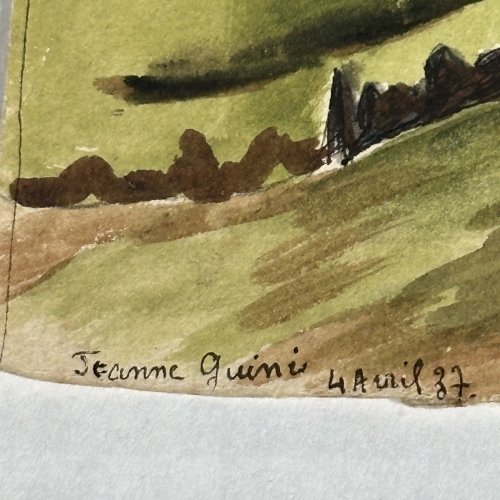 Jeanne Guini 4 Avril 37.